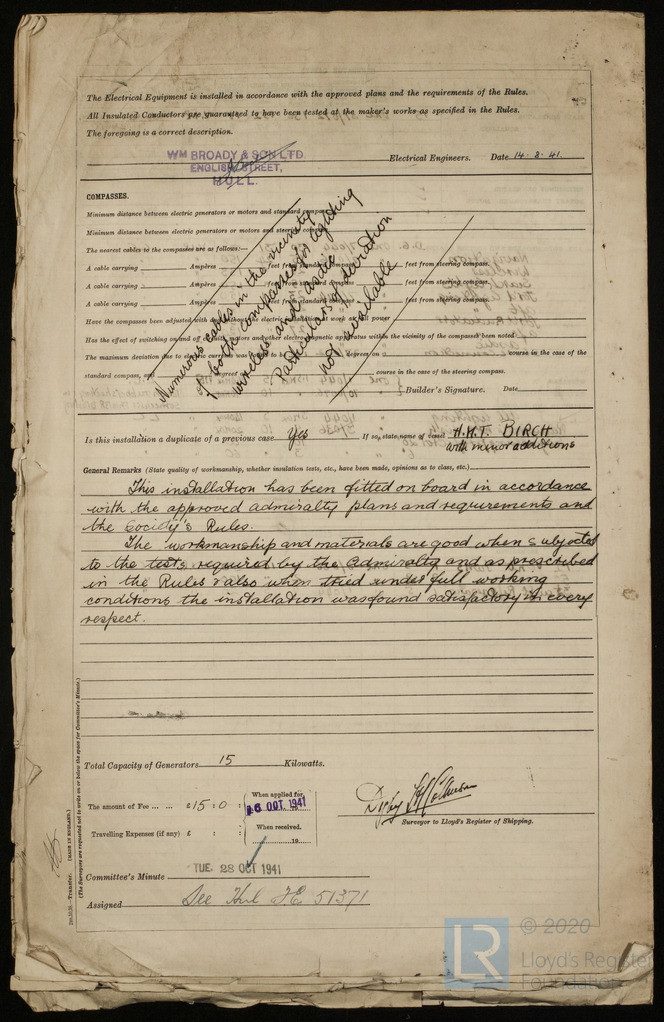 The Electrical Equipment is installed in accordance with the approved plans and the requirements of the Rules.
All Insulated Conductors are guaranteed to have been tested at the maker's works as specified in the Rules.
The foregoing is a correct description.
WM BROADY & SON LTD.
ENGLISH STREET,
HULL.
Electrical Engineers. Date 14-8-41.
COMPASSES.
Minimum distance between electric generators or motors and standard compass
Minimum distance between electric generators or motors and steering compass
The nearest cables to the compasses are as follows:—
A cable carrying Ampères feet from standard compass feet from steering compass.
A cable carrying Ampères feet from standard compass feet from steering compass.
A cable carrying Ampères feet from standard compass feet from steering compass.
Have the compasses been adjusted with and without the electric installation at work at full power
Has the effect of switching on and off circuits, motors and other electro magnetic apparatus within the vicinity of the compasses been noted
The maximum deviation due to electric currents was found to be degrees on course in the case of the
standard compass, and degrees on course in the case of the steering compass.
Numerous cables in the vicinety
of both compasses for lighting
wireless and asdic
Particulars of deviation
not available
Builder's Signature. Date
Is this installation a duplicate of a previous case Yes If so, state name of vessel H.M.T. BIRCH
with minor additions
General Remarks (State quality of workmanship, whether insulation tests, etc., have been made, opinions as to class, etc.)
This installation has been fitted on board in accordance
with the approved Admiralty plans and requirements and
the Society's Rules.
The workmanship and materials are good when subjected
to the tests required by the Admiralty and as prescribed
in the Rules & also when tried under full working
conditions the installation was found satisfactory in every
respect.
Total Capacity of Generators 15 Kilowatts.
The amount of Fee ... ... £15 : 0 :
When applied for,
26 OCT 1941
Travelling Expenses (if any) £ : :
When received.
19
Surveyor to Lloyd's Register of Shipping.
Committee's Minute TUE. 28 OCT 1941
Assigned See Hul F.E. 51371
(The Surveyors are requested not to write on or below the space for Committee's Minute.)
(MADE IN ENGLAND.)
Transfer.
LR
© 2020
Lloyd's Register
Foundation